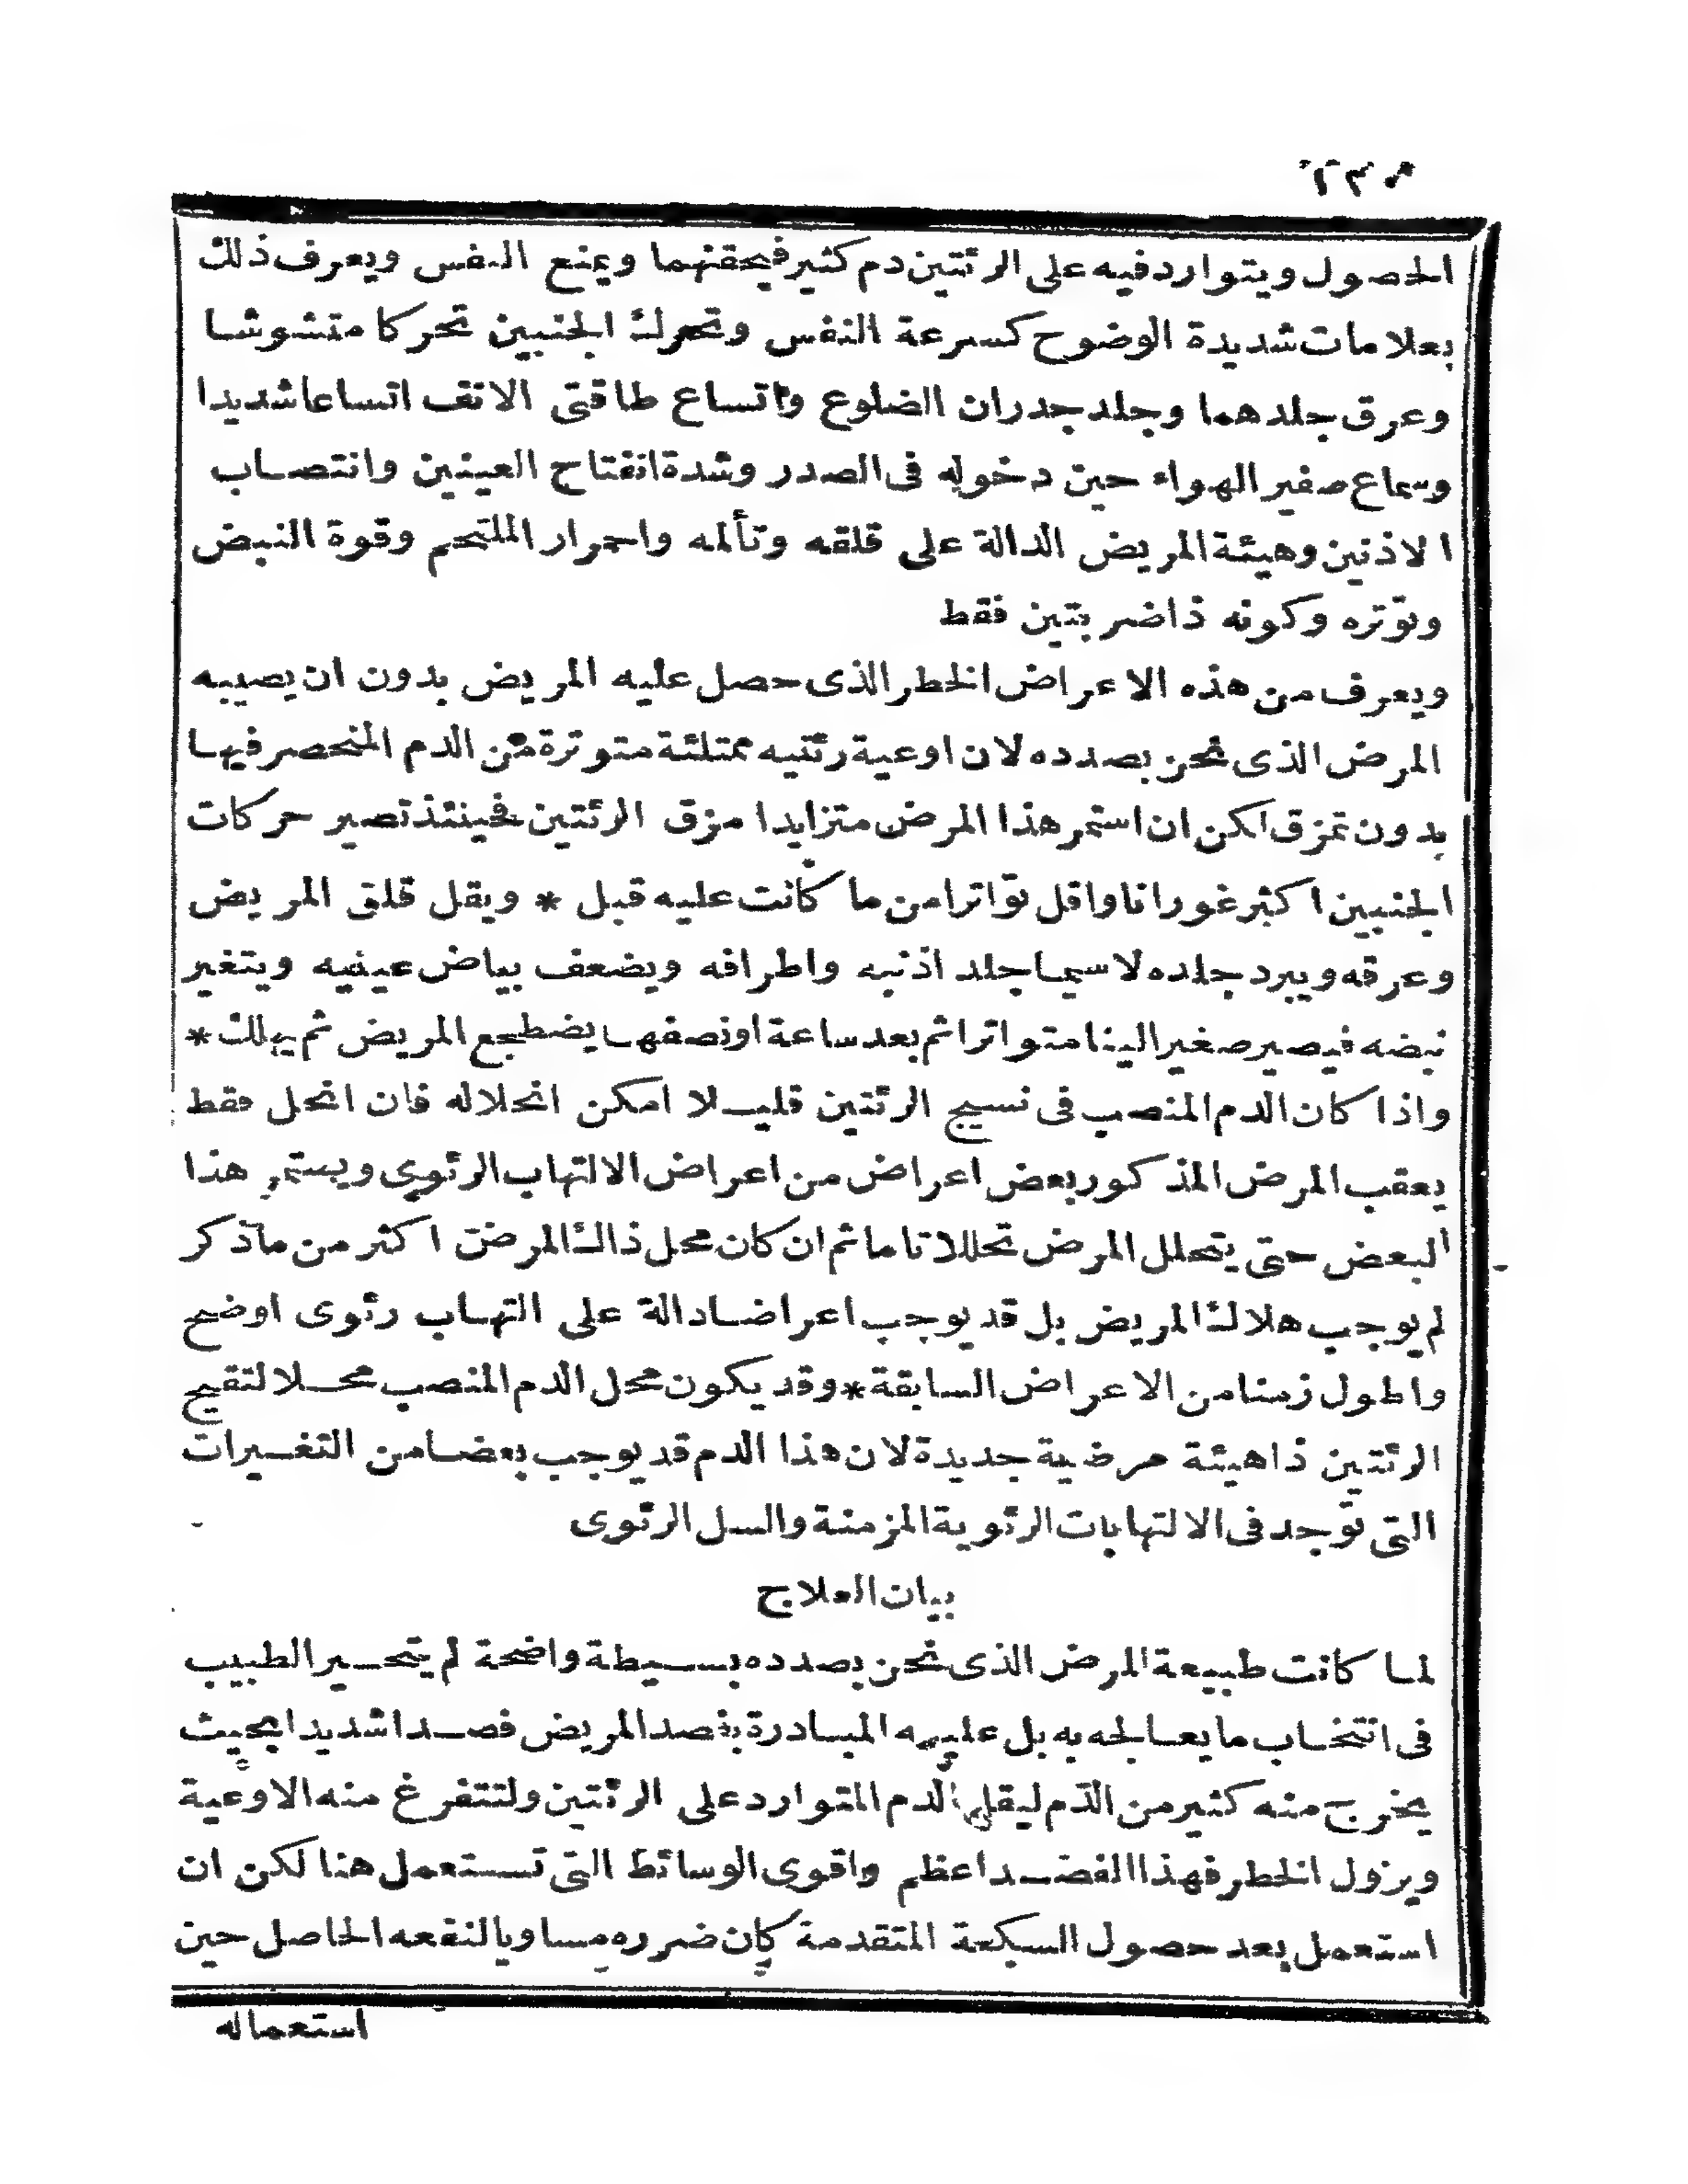 الحصول ويتوارد فيه على الرئتين دم كثير فيحقنهما ويمنع النفس ويعرف ذلك
بعلامات شديدة الوضوح كسرعة النفس وتحرك الجنبين تحركا متشوشا
وعرق جلدهما وجلد جدران الضلوع واتساع طاقتى الانف اتساعا شديدا
وسماع صفير الهواء حين دخوله فى الصدر وشدة انفتاح العينين وانتصاب
الاذنين وهيئة المريض الدالة على قلقه وتألمه واحمرار الملتحم وقوة النبض
وتوتره وكونه ذا ضربتين فقط
ويعرف من هذه الاعراض الخطر الذى حصل عليه المريض بدون ان يصيبه
المرض الذى نحن بصدده لان اوعية رئتيه ممتلئة متوترة من الدم المنحصر فيها
بدون تمزق لكن ان استمر هذا المرض متزايدا مزق الرئتين فحينئذ تصير حركات
الجنبين اكثر غورانا واقل تواترا من ما كانت عليه قبل * ويقل قلق المريض
وعرقه ويبرد جلده لا سيما جلد اذنيه واطرافه ويضعف بياض عينيه ويتغير
نبضه فيصير صغيرا لينا متواترا ثم بعد ساعة او نصفها يضطجع المريض ثم يهلك *
واذا كان الدم المنصب فى نسيج الرئتين قليلا امكن انحلاله فان انحل فقط
يعقب المرض المذكور بعض اعراض من اعراض الالتهاب الرئوى ويستمر هذا
البعض حتى يتحلل المرض تحللا تاما ثم ان كان محل ذاك المرض اكثر من ما ذكر
لم يوجب هلاك المريض بل قد يوجب اعراضا دالة على التهاب رئوى اوضح
واطول زمنا من الاعراض السابقة * وقد يكون محل الدم المنصب محلا لتقيح
الرئتين ذا هيئة مرضية جديدة لان هذا الدم قد يوجب بعضا من التغيرات
التى توجد فى الالتهابات الرئوية المزمنة والسل الرئوى
بيان العلاج
لما كانت طبيعة المرض الذى نحن بصدده بسيطة واضحة لم يتحير الطبيب
فى انتخاب ما يعالجه به بل عليه المبادرة بفصد المريض فصدا شديدا بحيث
يخرج منه كثير من الدم ليقل الدم المتوارد على الرئتين ولتتفرغ منه الاوعية
ويزول الخطر فهذا الفصد اعظم واقوى الوسائط التى تستعمل هنا لكن ان
استعمل بعد حصول السكتة المتقدمة كان ضرره مساويا لنفعه الحاصل حين
استعماله